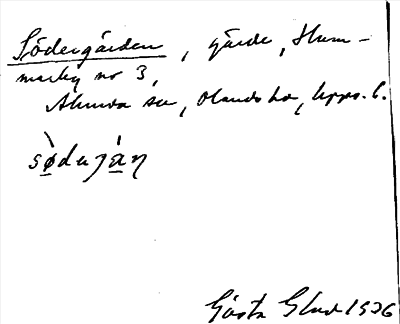 Södergärden, gärde, Hum-
marby nr 3,
Alunda sn, Olands hd, Upps. l.
sødәrjän
Gösta Glad 1936